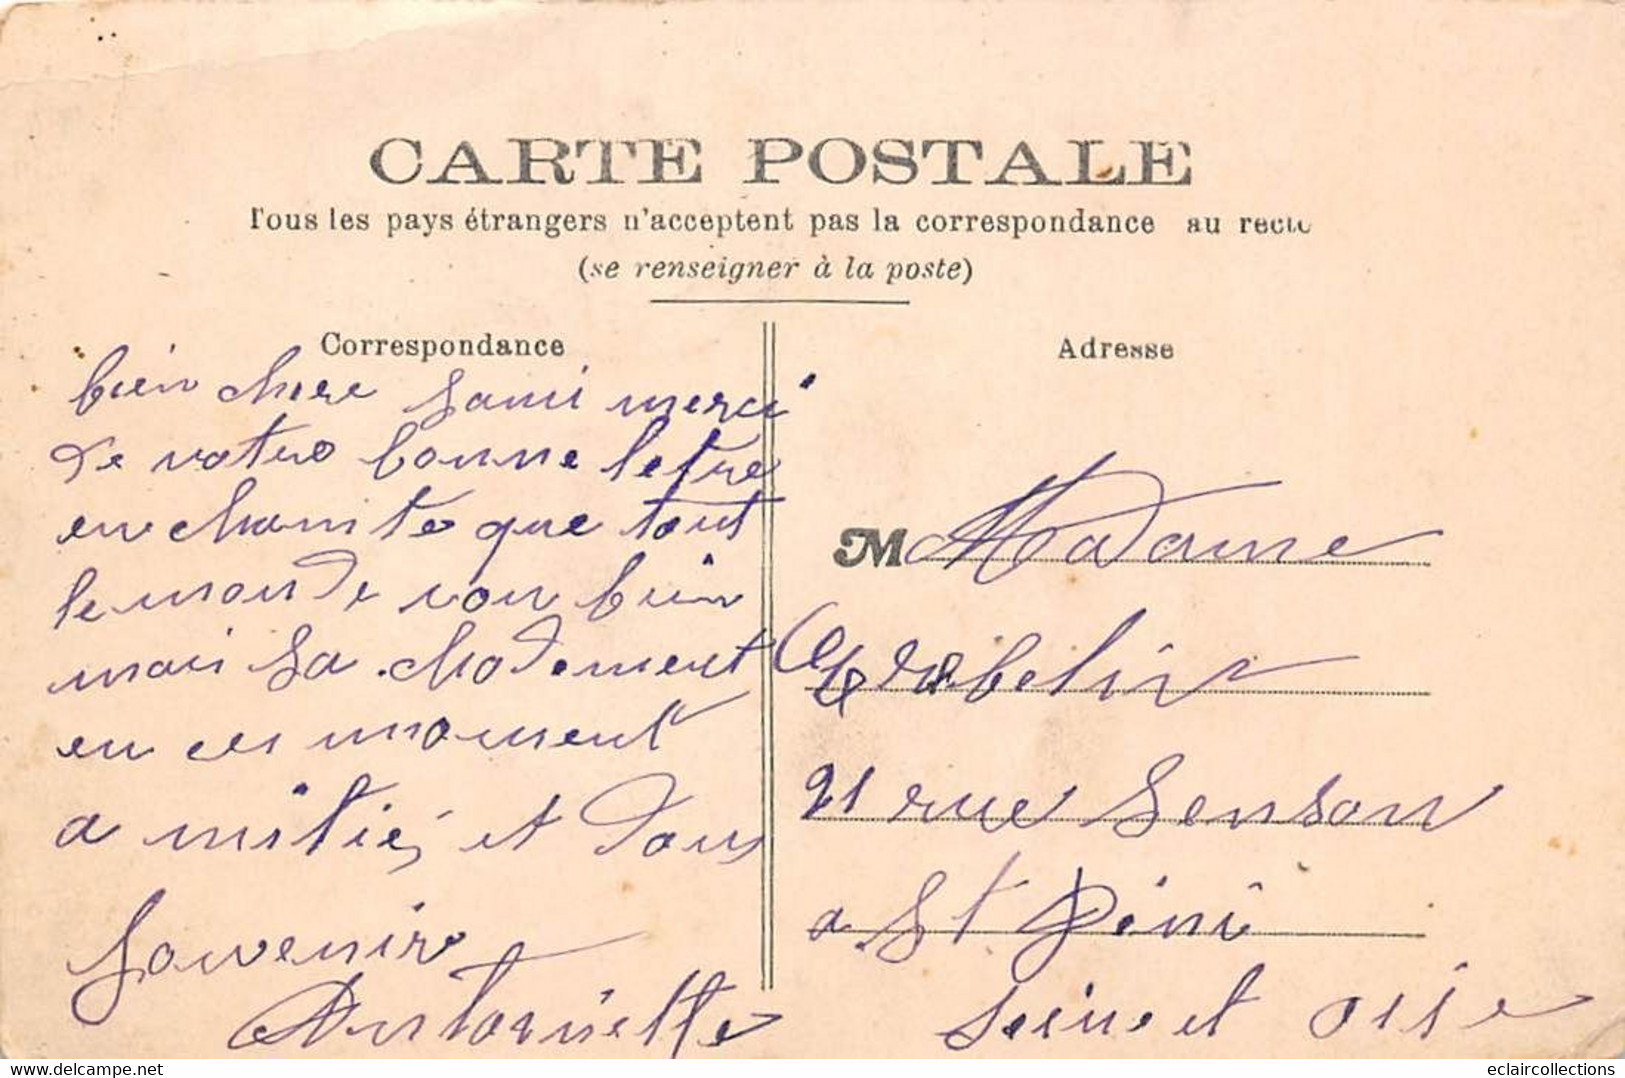 CARTE POSTALE
Tous les pays étrangers n'acceptent pas la correspondance au recto
(se renseigner à la poste)
Correspondance
bien chere Sami merci
de votre bonne letre
enchanité que tout
le monde von bien
mais sa chodement
en ces moment
a mitié, et dous
Souvenir
Antoinette
Adresse
M Madame
21 rue Senson
a St Deni
Seine et oise
eclaircollections